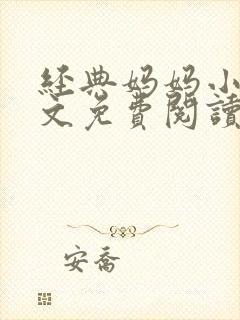 經典妈妈小
文免費閱讀
安喬